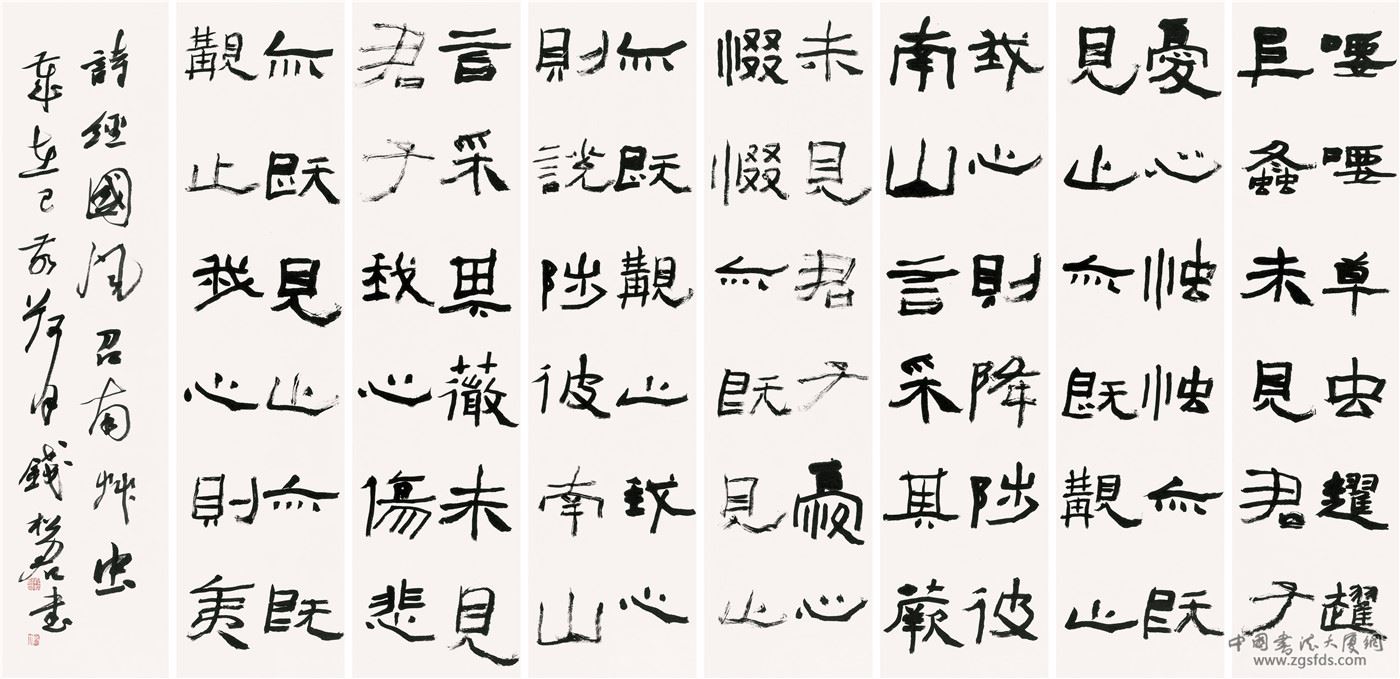 喓喓草虫趯趯
阜螽未見君子
憂心忡忡亦既
見止亦既覯止
我心則降陟彼
南山言采其蕨
未見君子憂心
惙惙亦既見止
亦既覯止我心
則說陟彼南山
言采其薇未見
君子我心傷悲
亦既見止亦既
覯止我心則夷
詩經國風召南艸虫
歲在己亥荷月錢松君書
中国书法大厦网
www.zgsfds.com